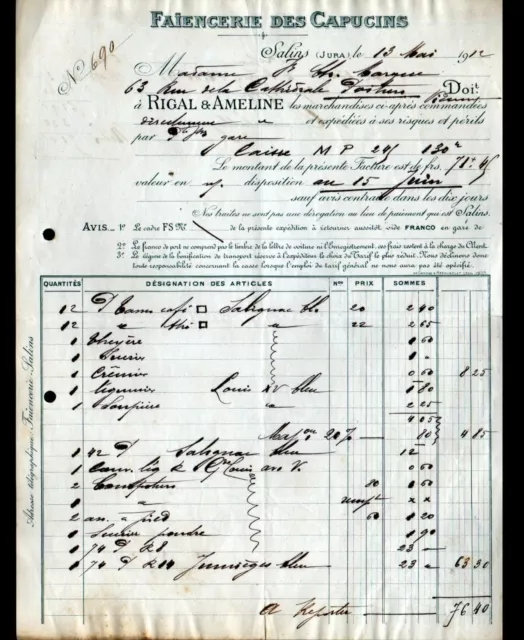 FAÏENCERIE DES CAPUCINS
Nº 690
Salins (JURA) le 13 Mai 1912
Madame
63 Rue de la Cathédrale Poitiers Doit
à RIGAL & AMELINE les marchandises ci-après commandées
directement et expédiées à ses risques et périls
par gare
1 Caisse M P 245 130k
Le montant de la présente Facture est de frs. 71.45
valeur en disposition au 15 Juin
sauf avis contraire dans les dix jours
Nos traites ne sont pas une dérogation au lieu de paiement qui est Salins.
AVIS._ 1º Le cadre FS Nº de la présente expédition à retourner aussitôt vide FRANCO en gare de
2º Le franco de port ne comprend pas le timbre de la lettre de voiture ni l'Enregistrement, ces frais restent à la charge du Client.
3º Le régime de la bonification de transport réserve à l'expéditeur le choix du Tarif le plus réduit. Nous déclinons donc
toute responsabilité concernant la casse lorsque l'emploi du tarif général ne nous aura pas été spécifié.
Adresse télégraphique: Faïencerie-Salins
QUANTITÉS DÉSIGNATION DES ARTICLES Nos PRIX SOMMES
12 café Salignac 20 2 40
12 thé 22 2 65
1 Théyère 1 60
1 Sucrier 1 "
1 Crémier 0 60 8 25
1 légumier Louis XV bleu 1 80
1 Soupière " 2 25
4 05
20 % 80 4 85
1 42 Salignac bleu 12
1 V. 0 60
2 Compotiers 80 1 60
1 " rempt x x
2 " pied 60 1 20
1 Sucrier poudre 0 90
1 74 23 —
1 74 Jumièges bleu 23 " 63 30
A Reporter 76 40